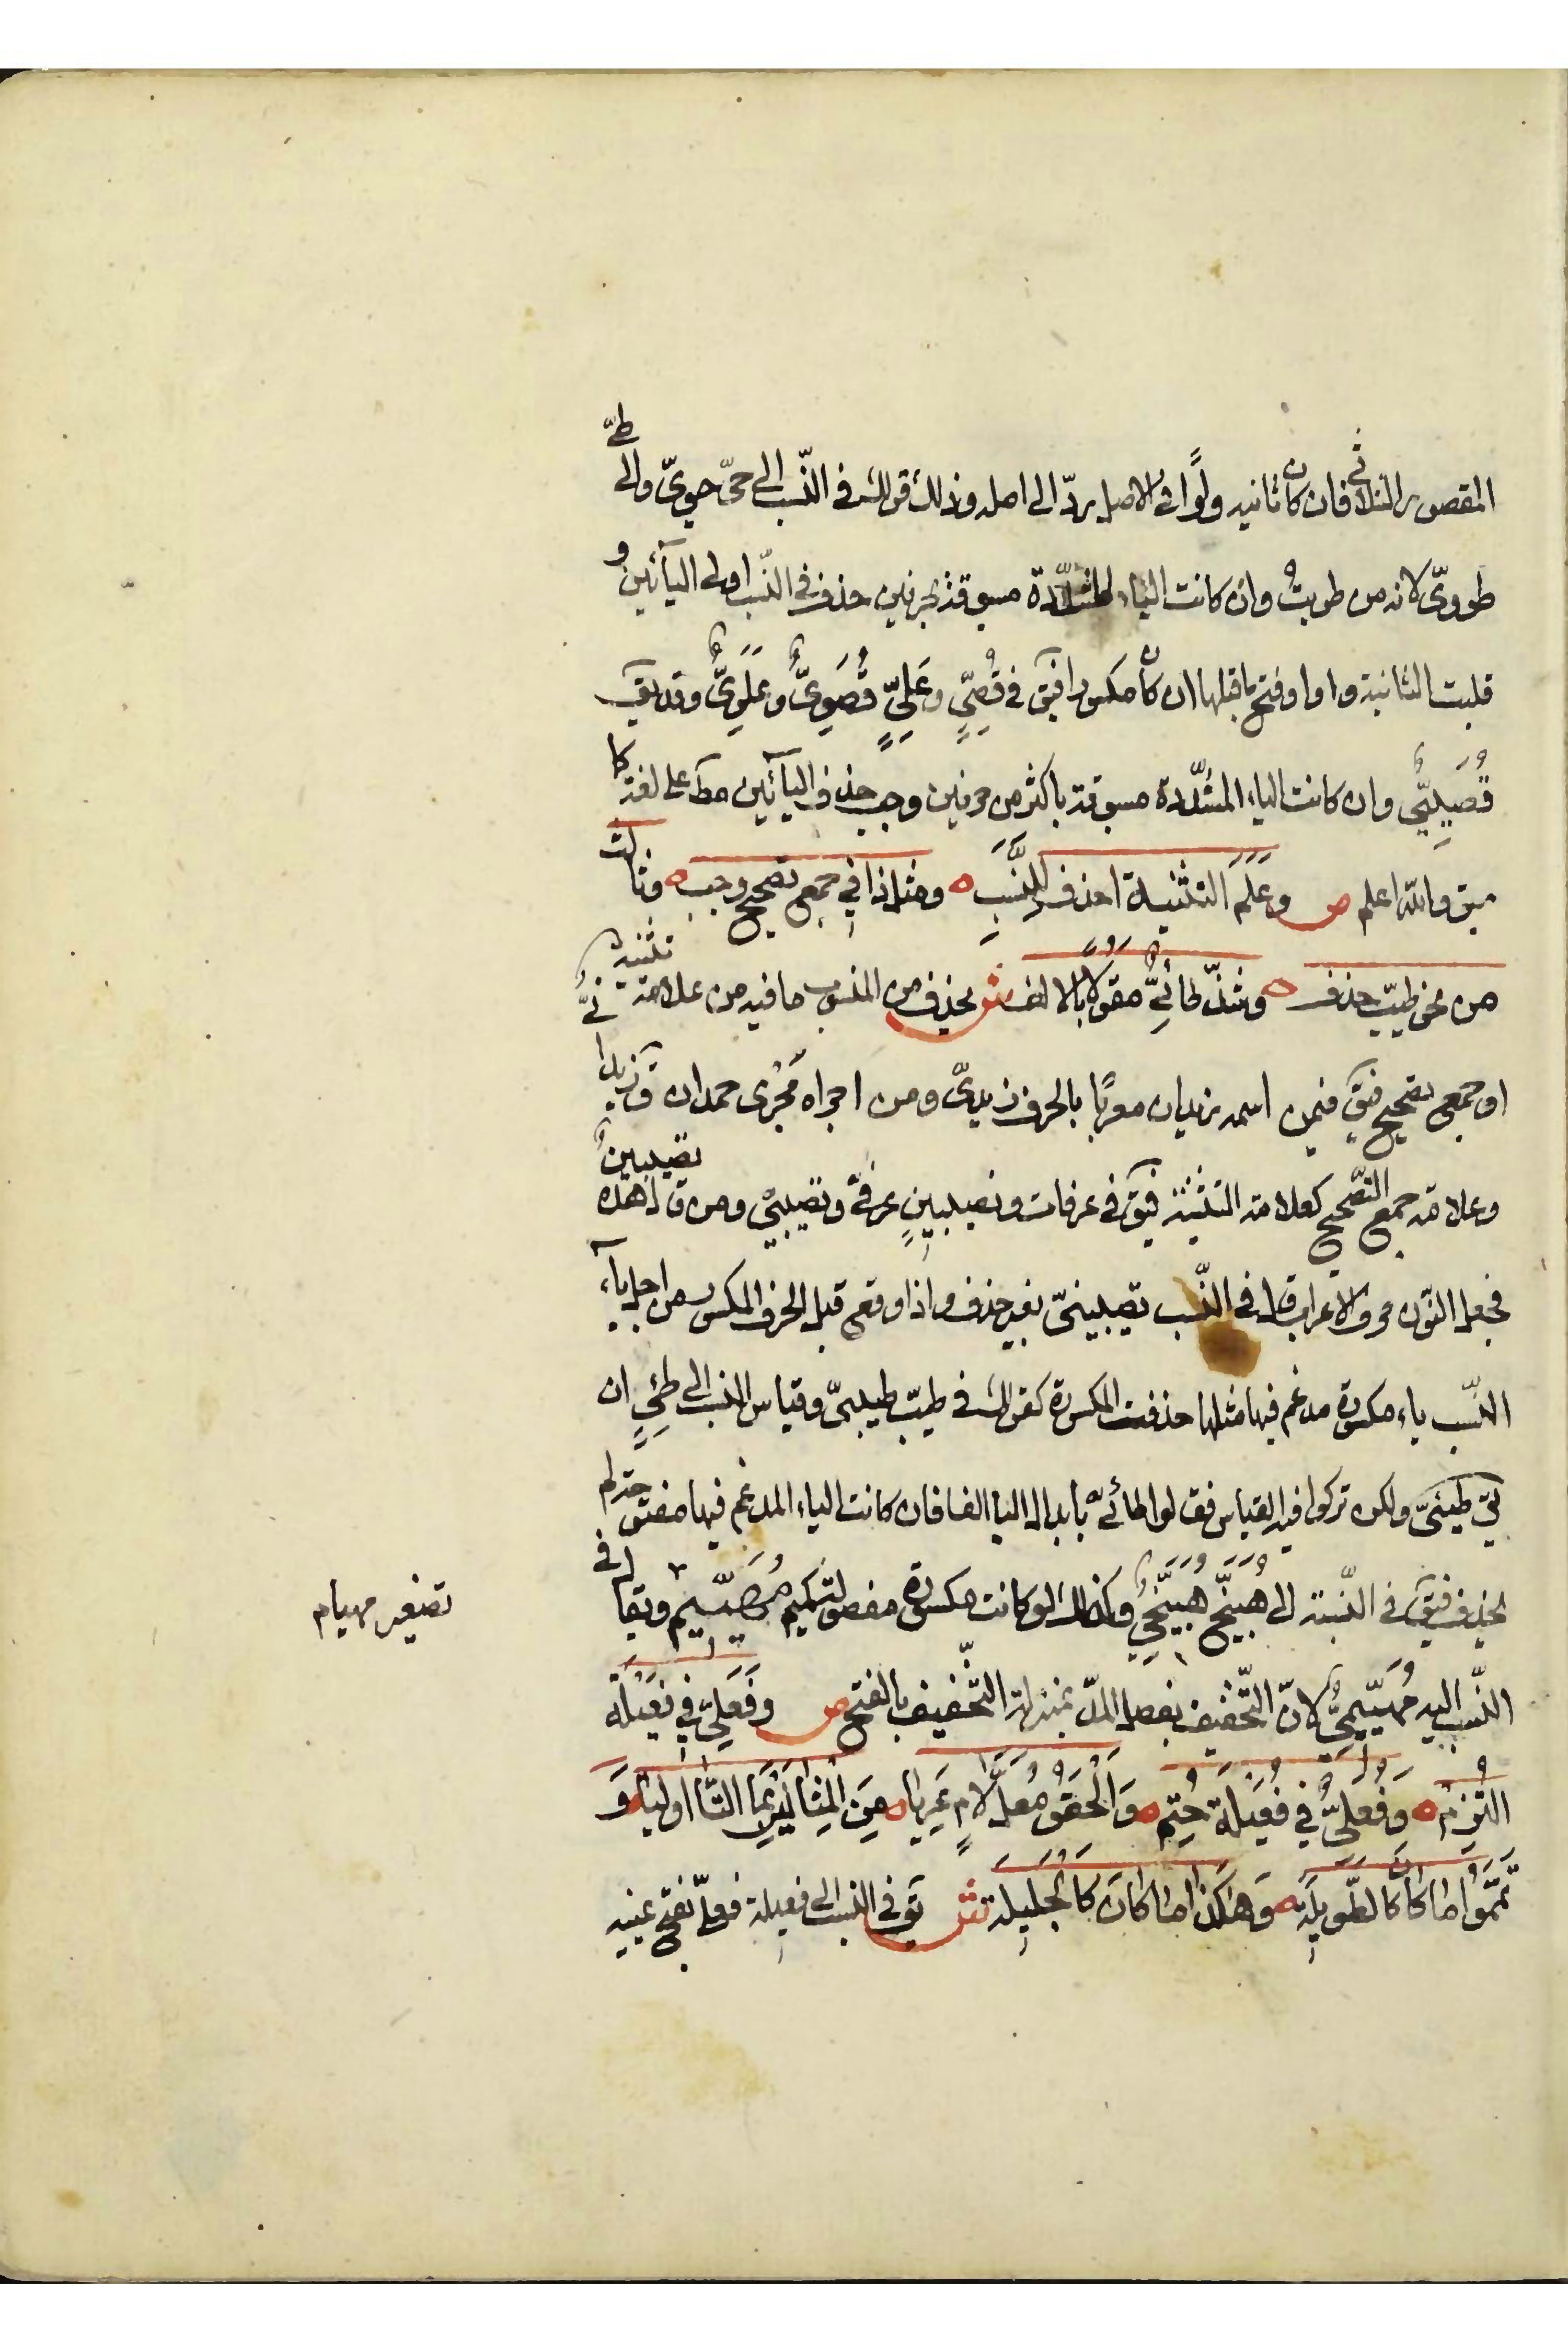 المقصور الثلاثي فان كان ثانيه واوًا في الاصل ردّ الى اصله وذلك قولك في النّسب الى حيّ حيويّ والى طيّ
طوويّ لانه من طويتُ وان كانت الياء المشدّدة مسبوقة بحرفين حذف في النّسب اولى اليائين و
قلبت الثانية واوا وفتح ما قبلها ان كان مكسورا فيق في قُصِيٍّ وعَلِيٍّ قُصَوِيٌّ وعَلَوِيٌّ وقد يق
قُصَيِّيٌّ وان كانت الياء المشدّدة مسبوقة باكثر من حرفين وجب حذف اليائين مط على لغة كا
سبق والله اعلم ص وعَلَمَ التثنية احذف للنَّسَبِ ه ومثل ذا في جمع تصحيح وجب ه وثالث
من نحو طيّب حذف ه وشذّ طائيٌّ مقولًا بالالف ش يحذف من المنسوب ما فيه من علامة تثنية
او جمع تصحيح فيق فيمن اسمه زيدان معربًا بالحرف زيديّ ومن اجراه مُجْرى حمدان ق زيدانيٌّ
وعلامة جمع التّصحيح كعلامة التثنية فيق في عرفات ونصيبينٍ عرفيٌّ ونصيبيّ ومن ق هذه نصيبينٌ
فجعل النّون حرف الاعراب قال في النّسب نصيبينيّ بغير حذف واذا وقع قبل الحرف المكسور من اجل ياء
النّسب ياء مكسورة مدغم فيها مثلها حذفت المكسورة كقولك في طيّب طيبيّ وقياس النسب الى طيّئٍ ان
يق طيئيّ ولكن تركوا فيه القياس فقالوا طائيّ بابدال اليا الفا فان كانت الياء المدغم فيها مفتوحة لم
يحذف فيق في النّسبة الى هُبَيَّخٍ هُبَيَّخِيٌّ وكذلك لو كانت مكسورة مفصولة كمهيّيم ويقال في
النّسب اليه مُهَيّيميٌّ لانّ التّخفيف بفصل المدّ بمنزلة التّخفيف بالفتح ص وفَعَلِيّ في فَعِيلَة
التُزِمْ ه وَفُعَلِيٌّ في فُعَيلَة حُتِم ه وَأَلْحَقُوا مُعَلَّ لَامٍ عَرِيَا ه مِنَ المِثالَيْنِ بِمَا التَّا اُولِيَا ه وَ
تَمَّمُوا ما كانَ كالطَّوِيلَه ه وَهٰكَذا ما كانَ كَالْجَلِيله ش يق في النسب الى فعيلة فعليّ بفتح عينه
تصغير مهيام